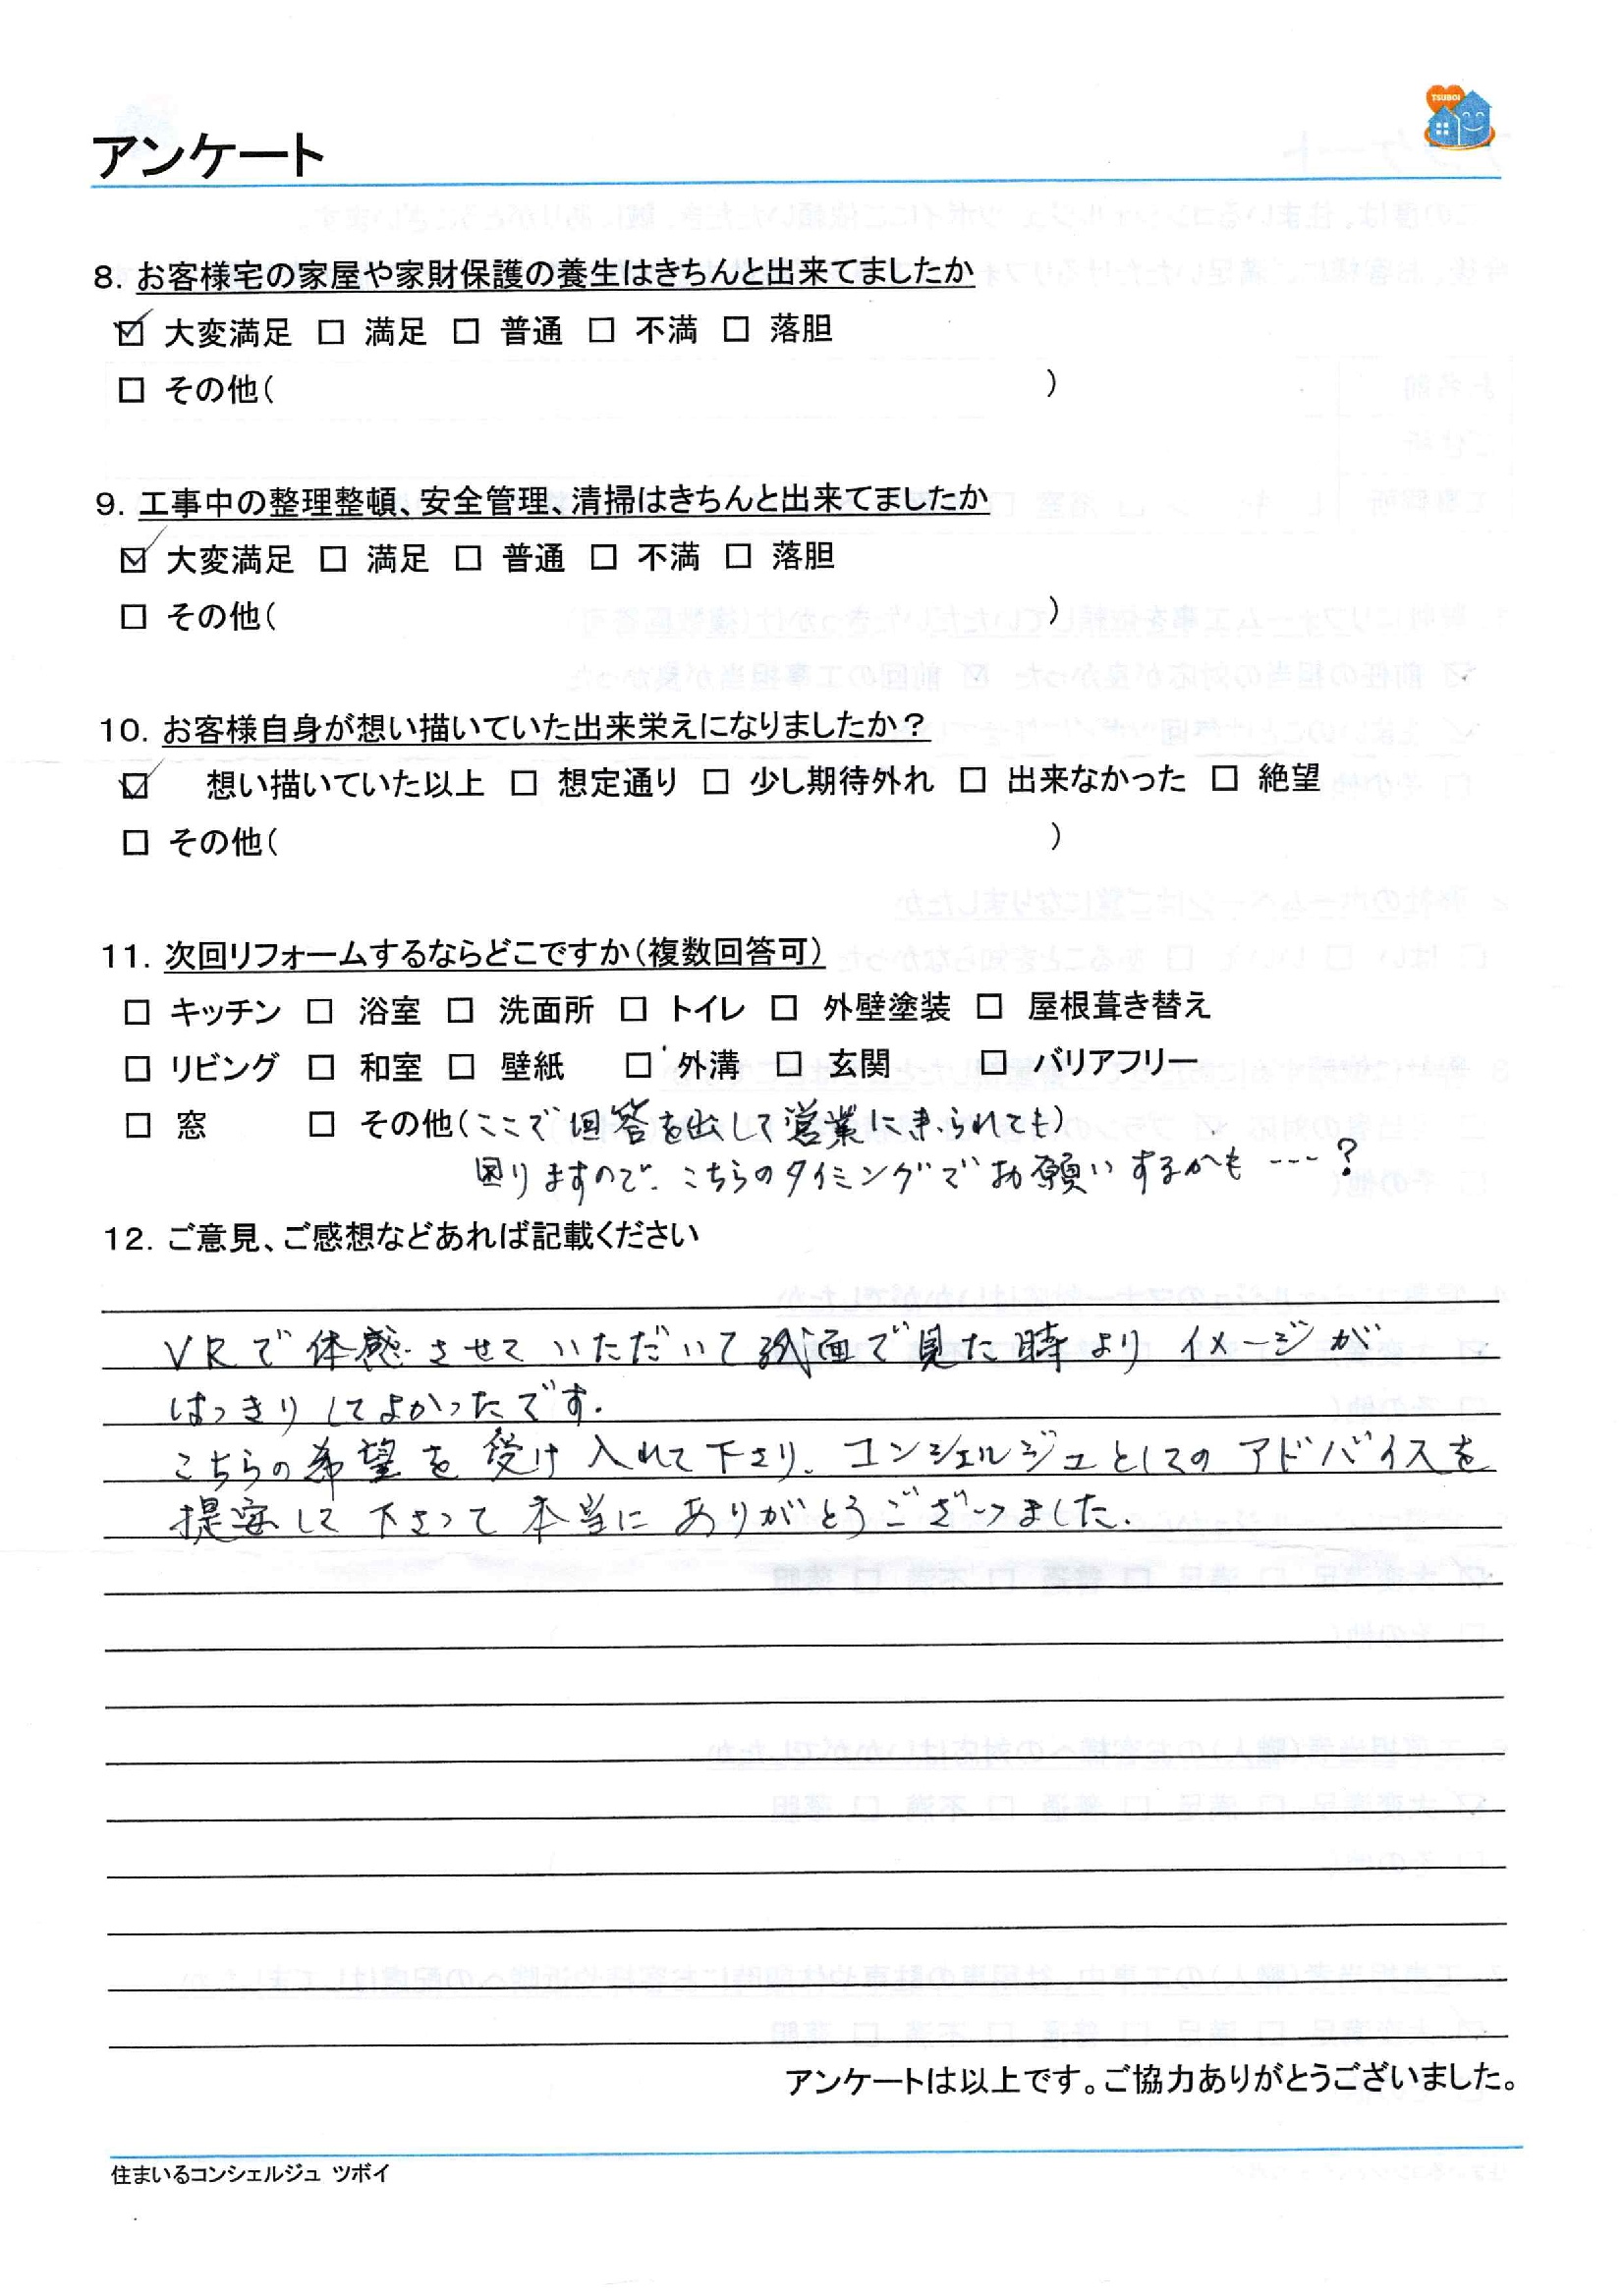 TSUBOI
アンケート
8. お客様宅の家屋や家財保護の養生はきちんと出来てましたか
☑ 大変満足 □ 満足 □ 普通 □ 不満 □ 落胆
□ その他( )
9. 工事中の整理整頓、安全管理、清掃はきちんと出来てましたか
☑ 大変満足 □ 満足 □ 普通 □ 不満 □ 落胆
□ その他( )
10. お客様自身が想い描いていた出来栄えになりましたか?
☑ 想い描いていた以上 □ 想定通り □ 少し期待外れ □ 出来なかった □ 絶望
□ その他( )
11. 次回リフォームするならどこですか(複数回答可)
□ キッチン □ 浴室 □ 洗面所 □ トイレ □ 外壁塗装 □ 屋根葺き替え
□ リビング □ 和室 □ 壁紙 □ 外溝 □ 玄関 □ バリアフリー
□ 窓 □ その他(ここで回答を出して営業にきられても)
困りますので、こちらのタイミングでお願いするかも…?
12. ご意見、ご感想などあれば記載ください
VRで体感させていただいて紙面で見た時よりイメージが
はっきりしてよかったです.
こちらの希望を受け入れて下さり、コンシェルジュとしてのアドバイスを
提案して下さって本当にありがとうございました.
アンケートは以上です。ご協力ありがとうございました。
住まいるコンシェルジュ ツボイ